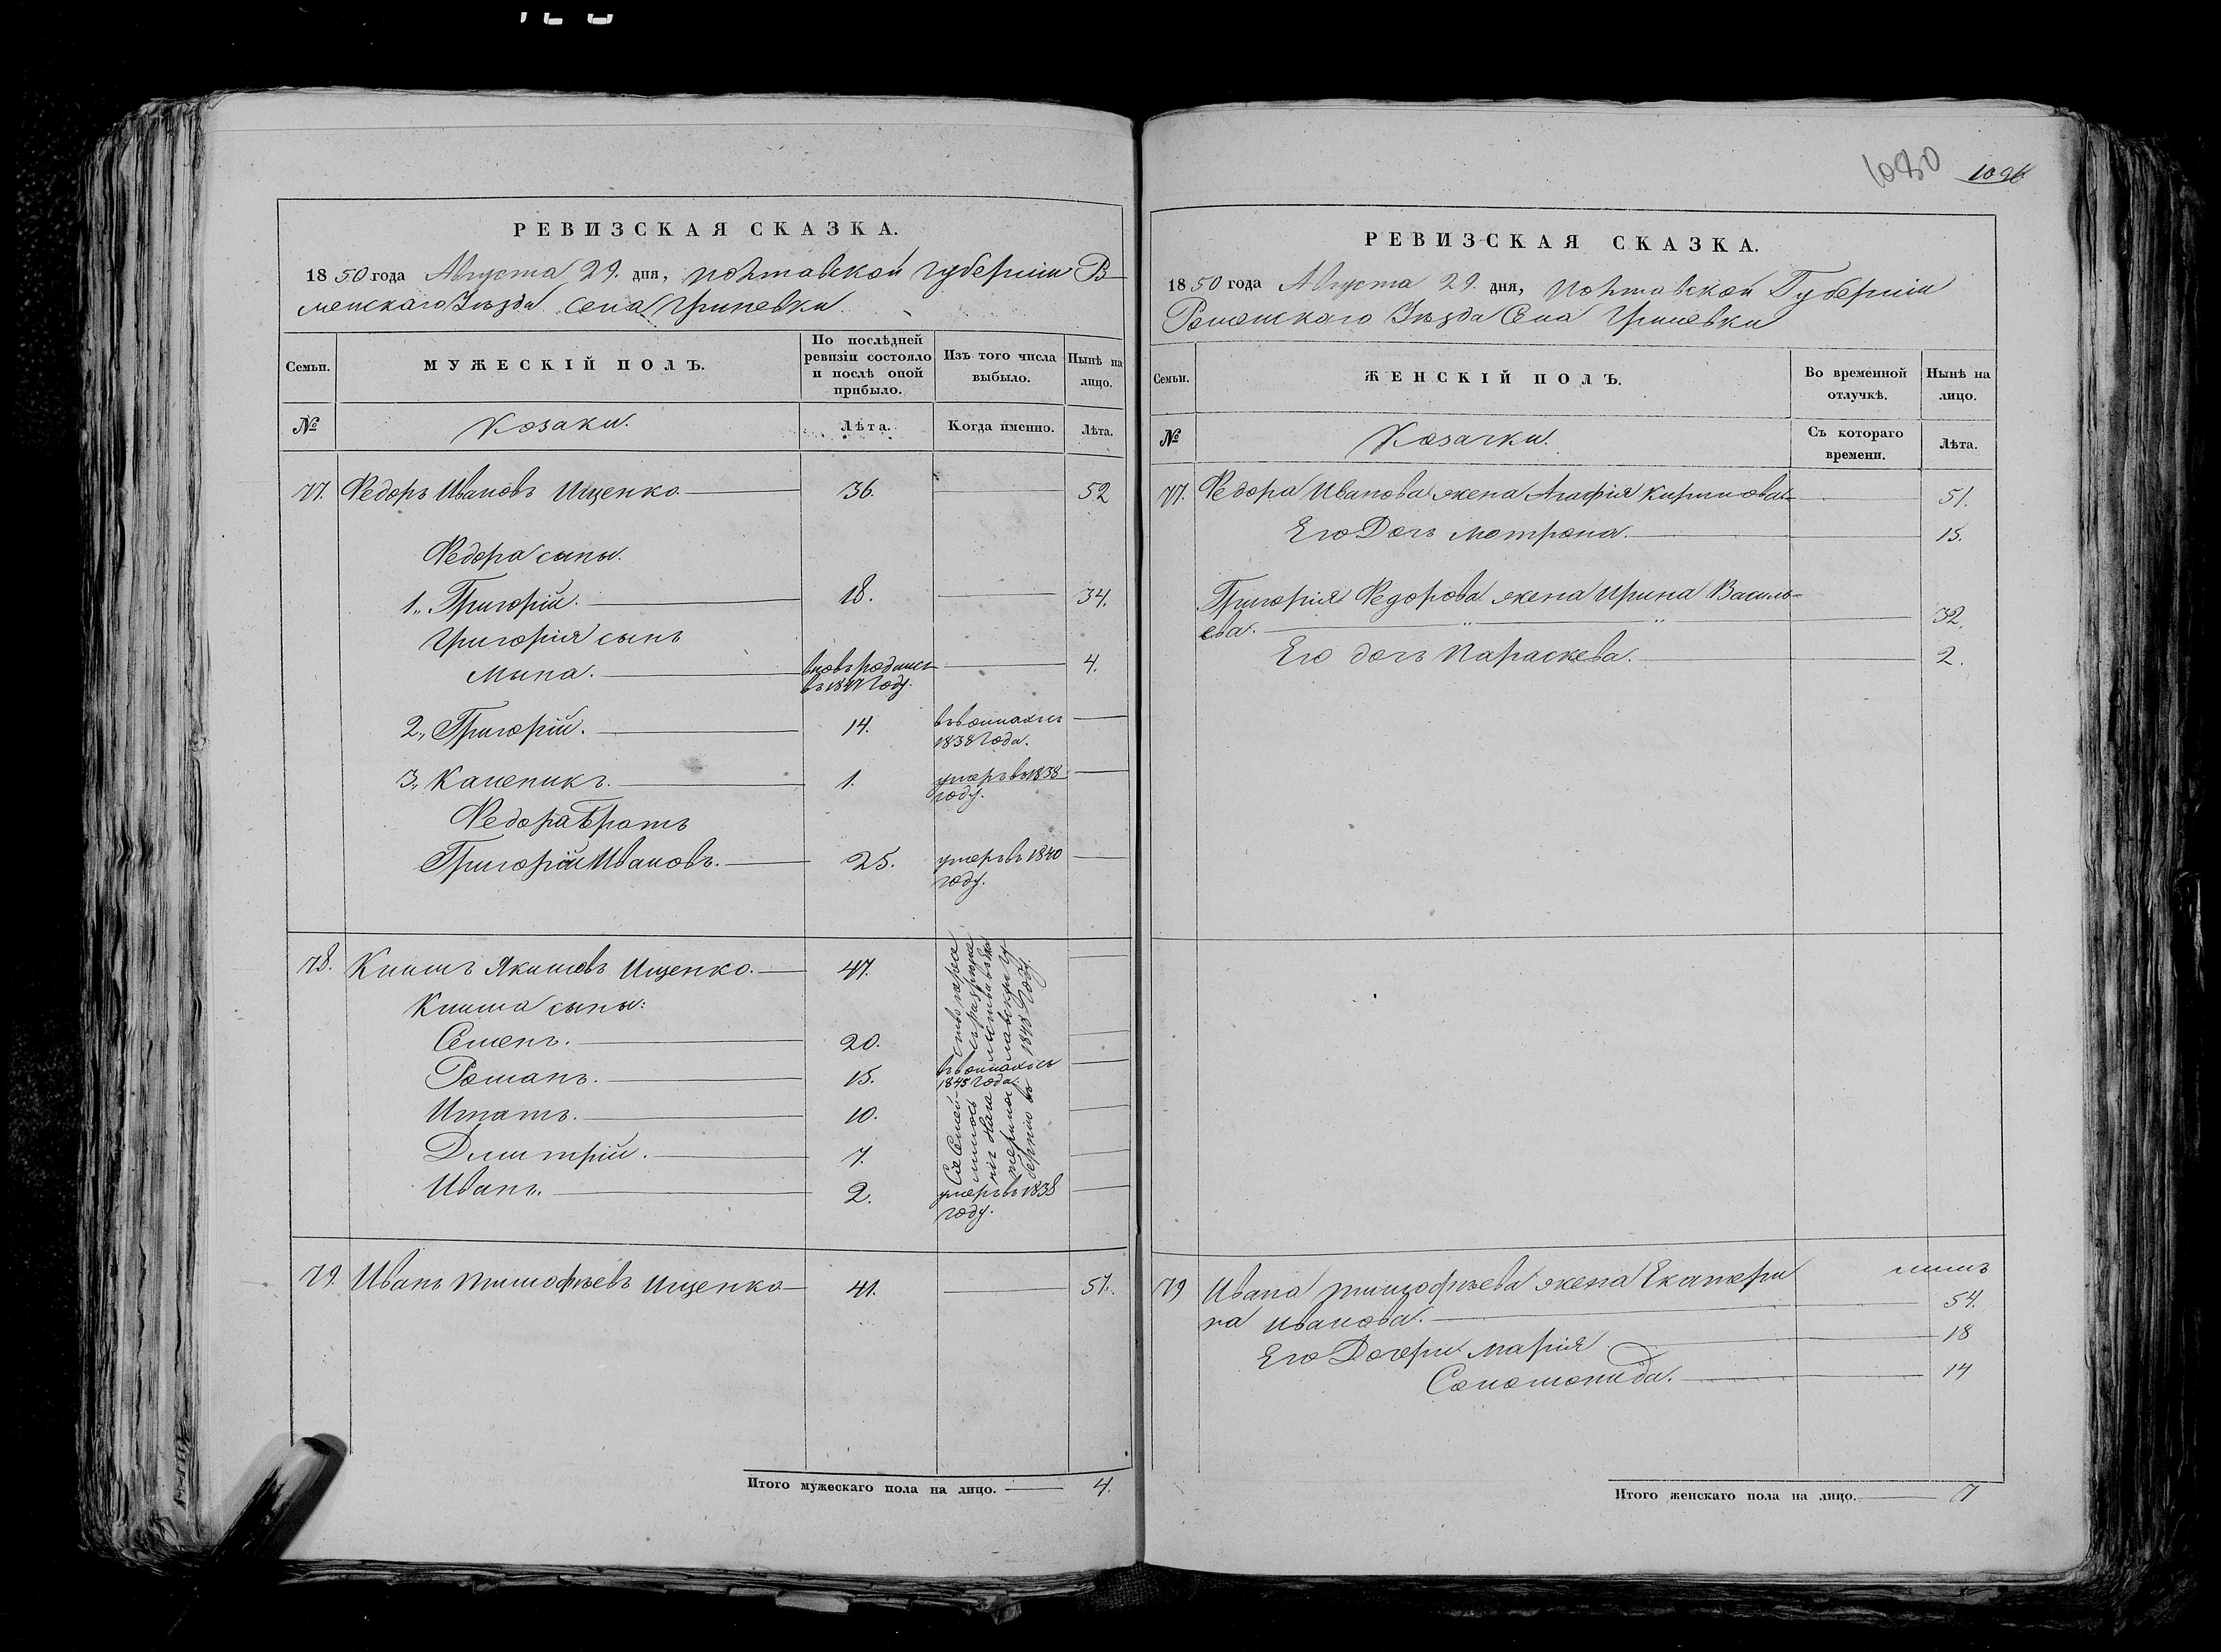 1080 1096
РЕВИЗСКАЯ СКАЗКА.
1850 года Августа 29. дня, Полтавской губерніи Ро-
менскаго Уѣзда Села Гриневки.
Семьи.
МУЖЕСКІЙ ПОЛЪ.
По послѣдней ревизіи состояло и послѣ оной прибыло.
Изъ того числа выбыло.
Нынѣ на лицо.
№
Козаки.
Лѣта.
Когда именно.
Лѣта.
77. Федоръ Ивановъ Ищенко 36. 52
Федора сыны.
1., Григорій. 18. 34.
Григорія сынъ
Мина. вновь родился 4.
въ 1847 году.
2., Григорій. 14. въ воинахъ съ
1838 года.
3., Каленикъ. 1. умеръ въ 1838
году.
Федора братъ
Григорій Ивановъ. 25. умеръ въ 1840
году.
78. Климъ Якимовъ Ищенко. 47.
Клима сыны:
Семенъ. 20.
Романъ. 15. въ воинахъ съ
1845 года.
Игнатъ. 10.
Дмитрій. 7.
Иванъ. 2. умеръ въ 1838
году.
1848 году.
79. Иванъ Тимофѣевъ Ищенко 41. 57.
Итого мужескаго пола на лицо. 4.
РЕВИЗСКАЯ СКАЗКА.
1850 года Августа 29. дня, Полтавской Губерніи
Роменскаго Уѣзда Села Гриневки
Семьи.
ЖЕНСКІЙ ПОЛЪ.
Во временной отлучкѣ.
Нынѣ на лицо.
№
Козачки.
Съ котораго времени.
Лѣта.
77. Федора Иванова жена Агафія Кирилова 51.
Его Дочь Мотрона. 15.
Григорія Федорова жена Ирина Василь-
ева. 32.
Его дочь Параскева. 2.
79 Ивана Тимофѣева жена Екатери
на Иванова. 54.
Его Дочери Марія 18
Соломонида. 14
Итого женскаго пола на лицо. 7